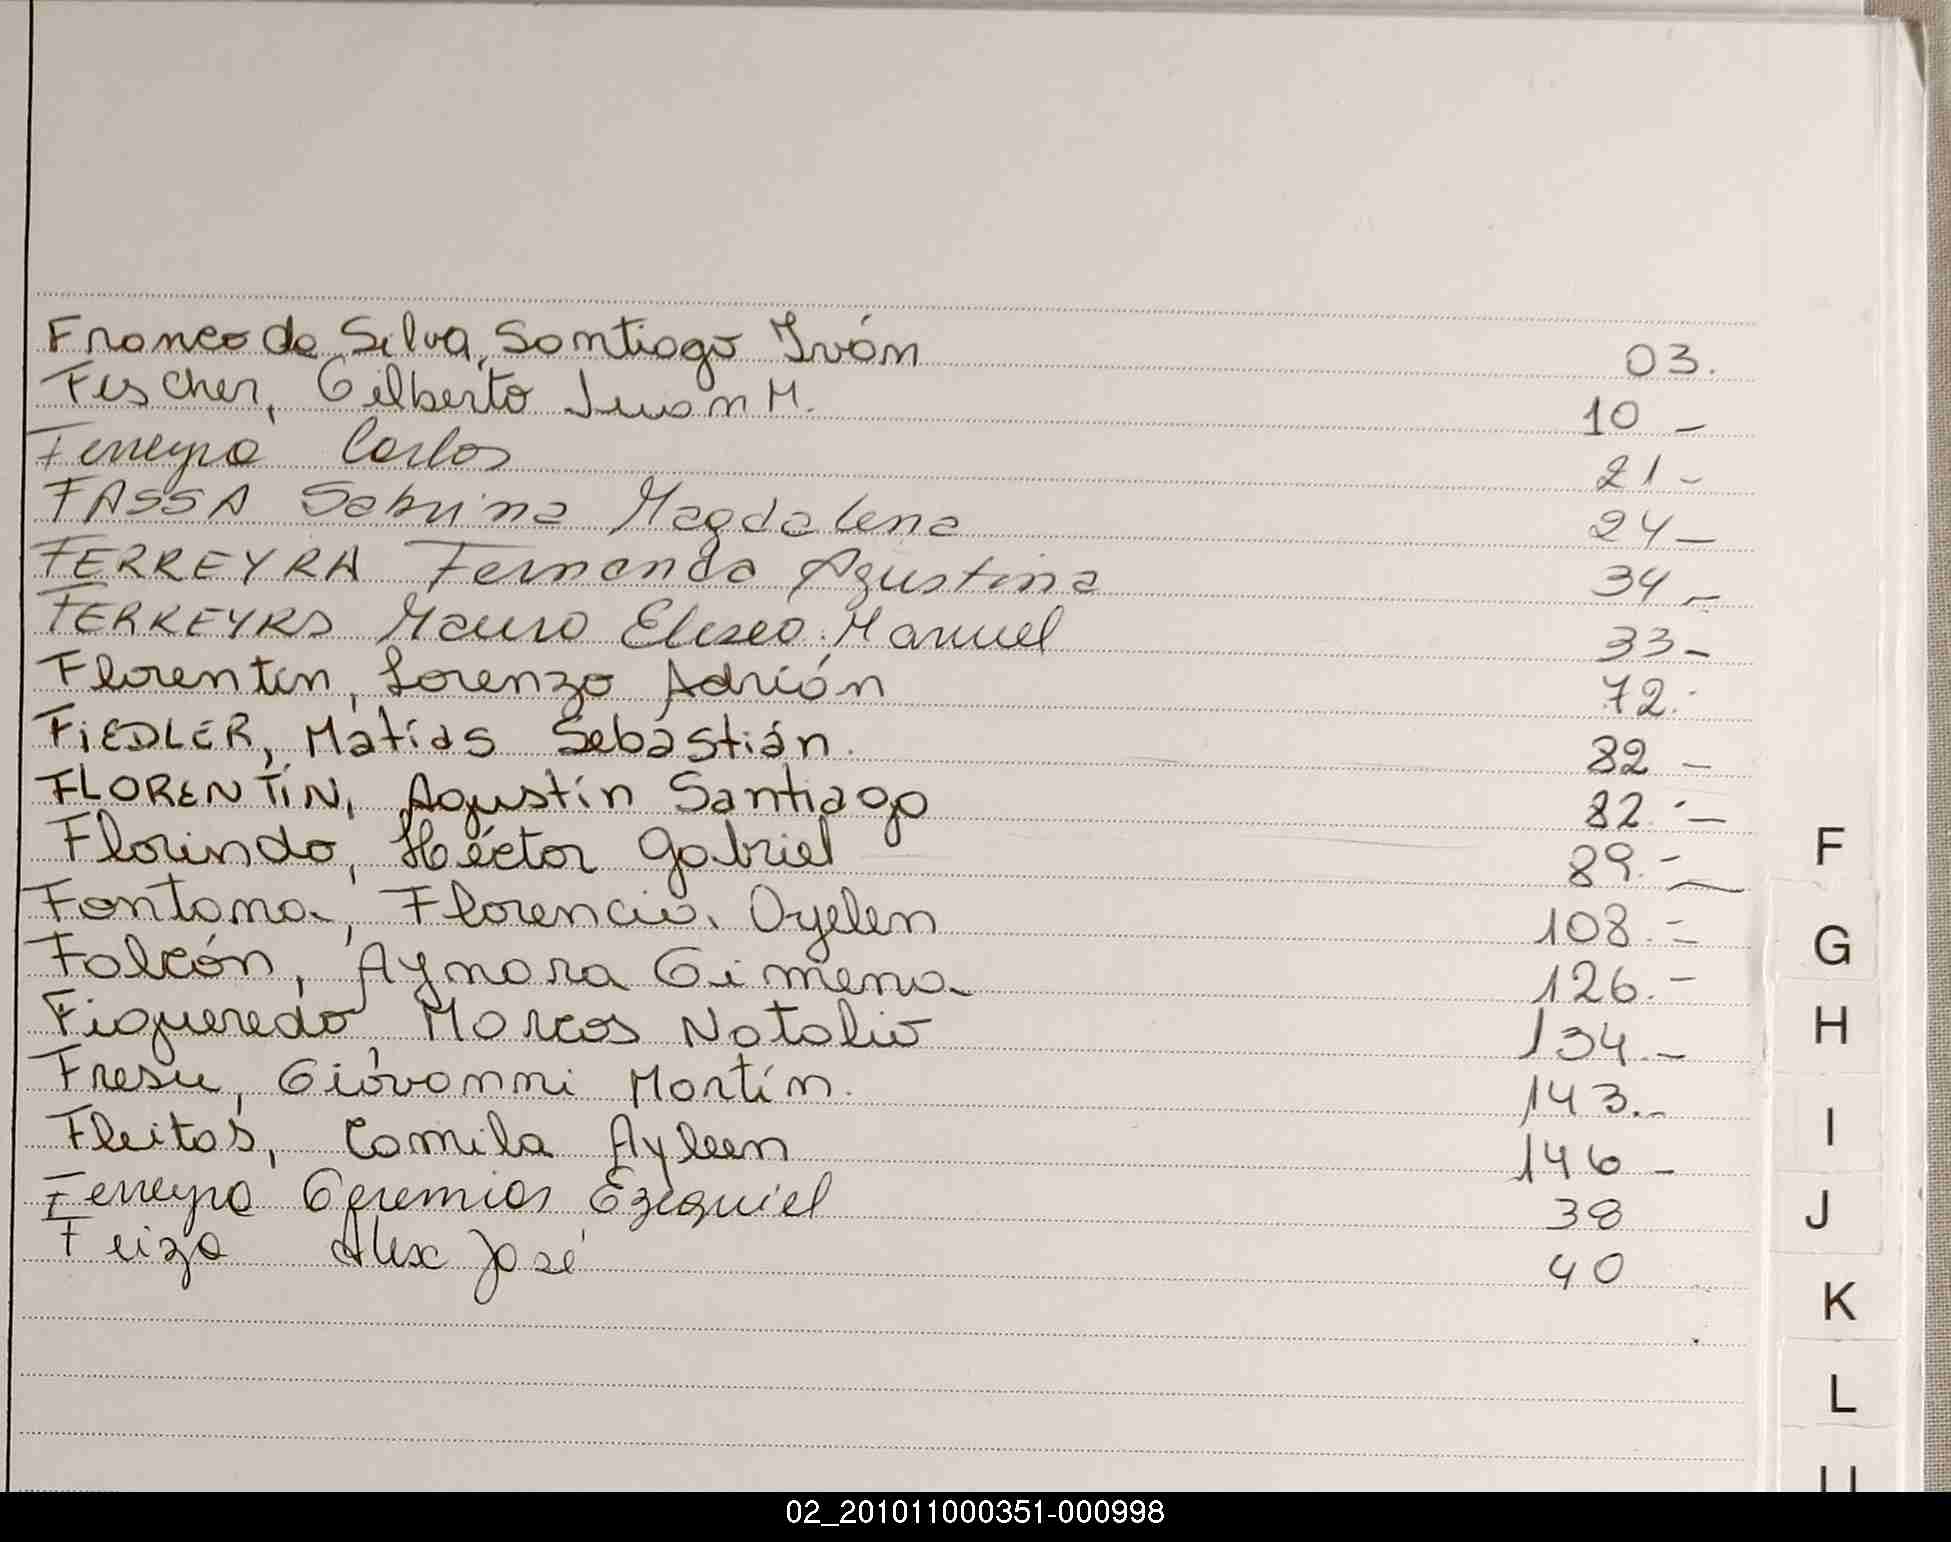 Franco da Silva, Santiago Iván 03.
Fischer, Gilberto Juan M. 10 -
Ferreyra Carlos 21 -
FASSA Sabrina Magdalena 24 -
FERREYRA Fernanda Agustina 34 -
FERREYRA Mauro Eliseo Manuel 33 -
Florentin, Lorenzo Adrián 72.-
FiEDLER, Matias Sebastián. 82 -
FLORENTÍN, Agustín Santiago 82.-
Florindo, Héctor Gabriel 89.-
Fontana, Florencia Oyelen 108.-
Falcón, Aynara Gimena 126.-
Figueredo, Marcos Natalio 134.-
Fresu, Gióvanni Martín. 143.-
Fleitas, Camila Ayleen 146 -
Ferreyra Geremias Ezequiel 38
Feiza Alex José 40
F
G
H
I
J
K
L
02_201011000351-000998